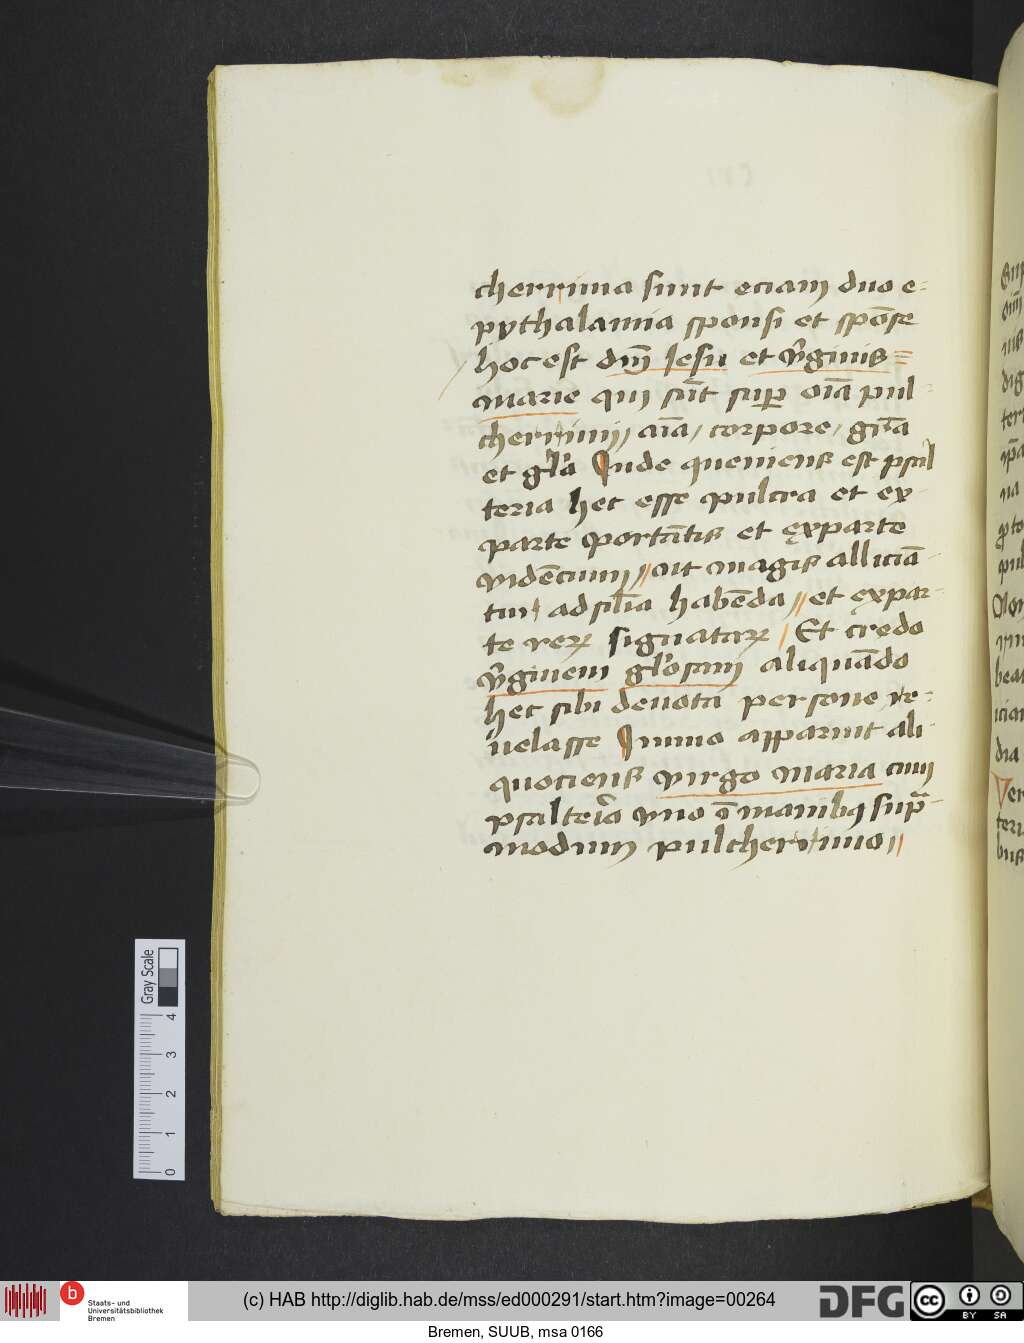 cherrima sunt eciam duo e-
pythalamia sponsi et spōse
hoc est dm̄ Jesu et v̄ginis
marie qui sūt sup oīa pul-
cherrimi, aīa, corpore, gr̄a
et gl̄a Unde queniens est psal
teria hec esse pulcra et ex
parte portātis et ex parte
vidēcium, ut magis alliciā-
tur ad silīa habēda, et ex par-
te rerꝝ signatarꝝ Et credo
v̄ginem gl̄osam aliquādo
hec sibi devota persone re-
uelasse Immo apparuit ali
quociens virgo maria cum
psalterio vno ī manibꝫ sup̄-
modum pulcherrimo
Gray Scale
0 1 2 3 4
b Staats- und
Universitätsbibliothek
Bremen
(c) HAB http://diglib.hab.de/mss/ed000291/start.htm?image=00264
DFG
cc BY SA
Bremen, SUUB, msa 0166